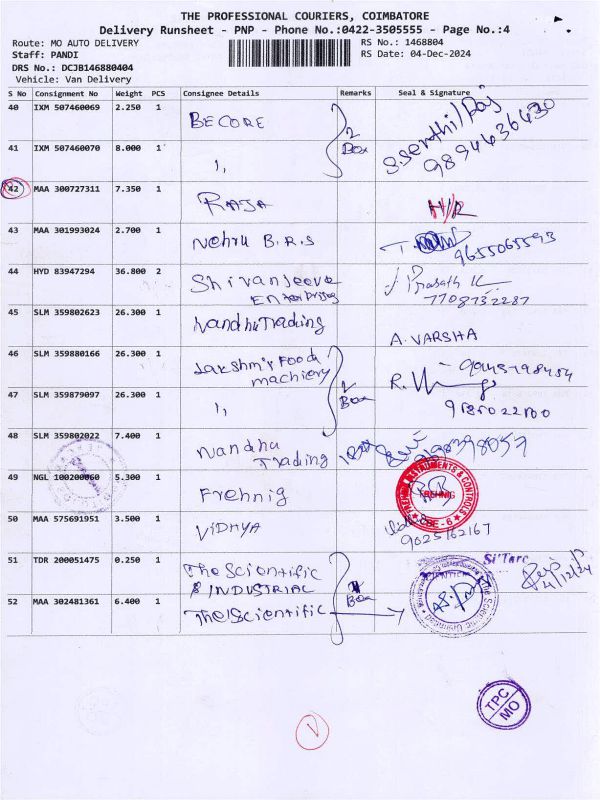 THE PROFESSIONAL COURIERS, COIMBATORE
Delivery Runsheet - PNP - Phone No.:0422-3505555 - Page No.:4
Route: MO AUTO DELIVERY RS No.: 1468804
Staff: PANDI RS Date: 04-Dec-2024
DRS No.: DCJB146880404
Vehicle: Van Delivery
S No Consignment No Weight PCS Consignee Details Remarks Seal & Signature
40 IXM 507460069 2.250 1 BECORE 2 Box Senthil/Raj 9894636430
41 IXM 507460070 8.000 1 ,,
42 MAA 300727311 7.350 1 RAJA H/R
43 MAA 301993024 2.700 1 Nehru B.R.S 9655065593
44 HYD 83947294 36.800 2 Shivanjeeve Enterprises J Prasath K 7708732287
45 SLM 359802623 26.300 1 Nandhu Trading A. VARSHA
46 SLM 359880166 26.300 1 Lakshmi Food machiery 2 Box
47 SLM 359879097 26.300 1 ,,
48 SLM 359802022 7.400 1 Nandhu Trading
49 NGL 100200060 5.300 1 Frehnig FREHNIG
INSTRUMENTS & CONTROLS
CBE - 6
50 MAA 575691951 3.500 1 VIDHYA 9025162167
51 TDR 200051475 0.250 1 The Scientific & INDUSTRIAL Box 4/12/24
52 MAA 302481361 6.400 1 The Scientific
TPC
MO